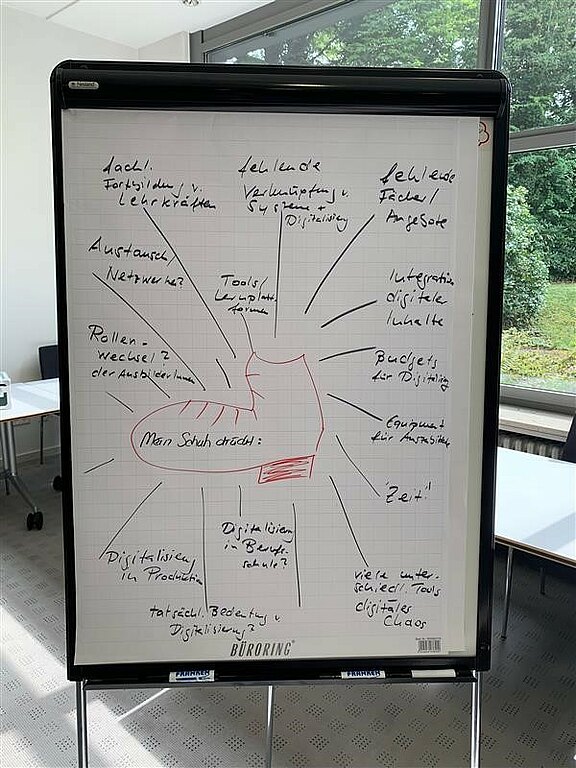 fachl.
Fortbildung v.
Lehrkräften
fehlende
Verknüpfung v.
Systeme +
Digitalisierung
fehlende
Fächer/
Angebote
Austausch/
Netzwerke?
Tools/
Lernplatt-
formen
Integration
digitaler
Inhalte
Rollen-
wechsel?
der AusbilderInnen
Budgets
für Digitalisierung
Mein Schuh drückt:
Equipment
für Auszubildende
"Zeit"
Digitalisierung
in Produktion
Digitalisierung
in Berufs-
schule?
viele unter-
schiedl. Tools
digitales
Chaos
tatsächl. Bedeutung v.
Digitalisierung?
BÜRORING
FRANKEN
FRANKEN